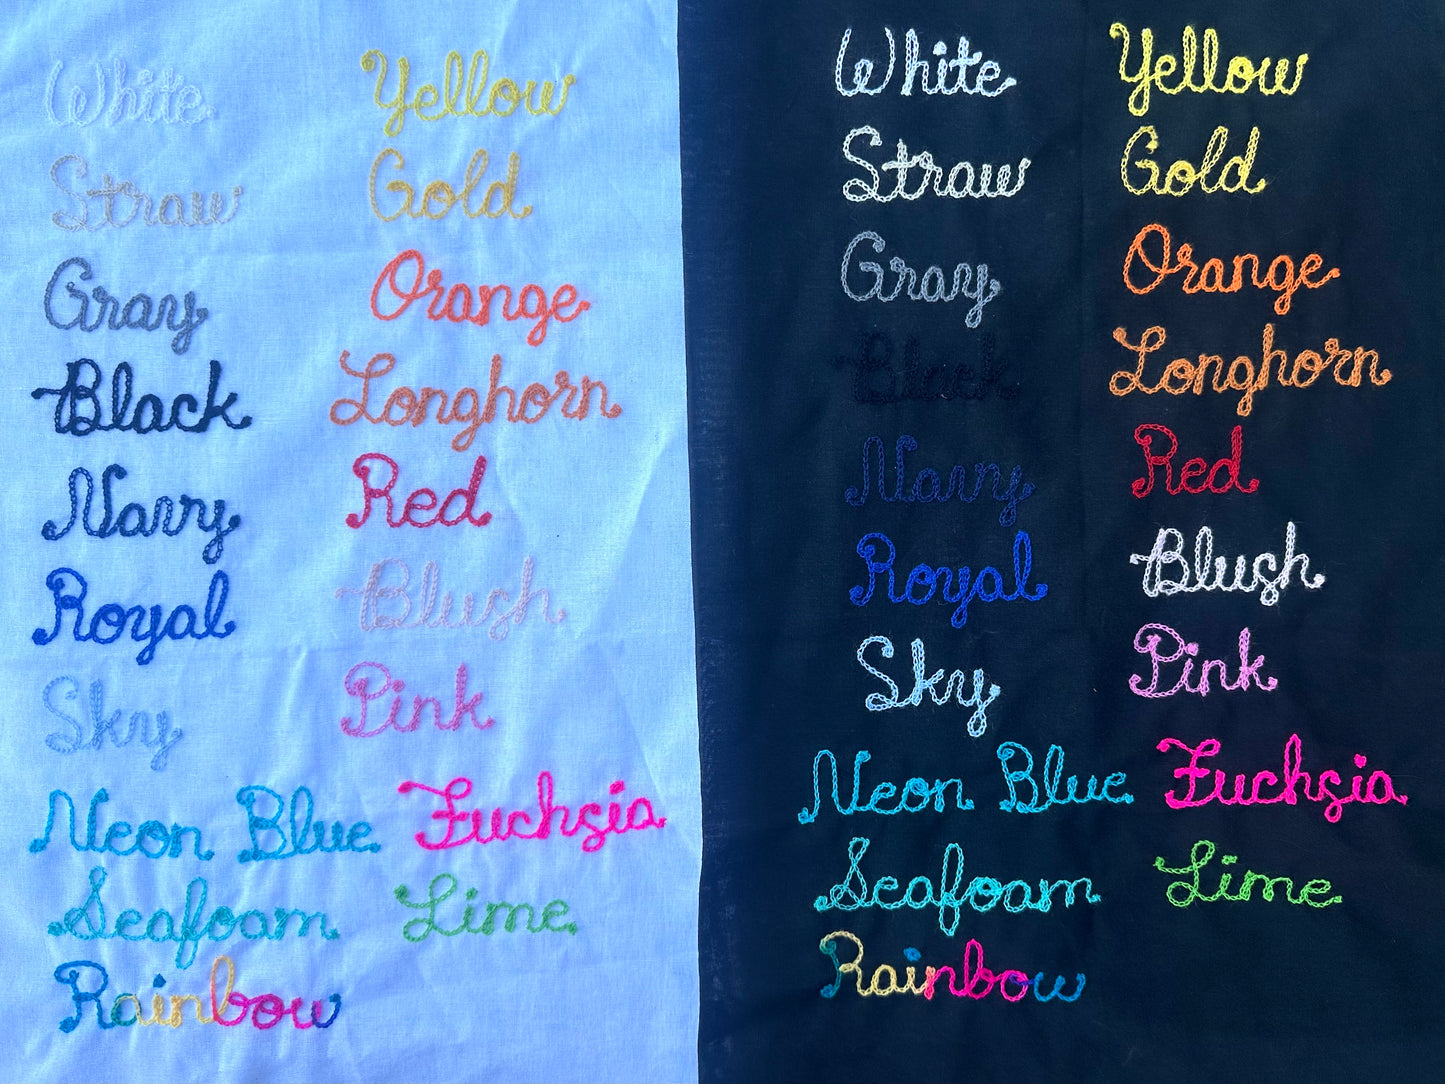 White
Straw
Gray
Black
Navy
Royal
Sky
Neon Blue
Seafoam
Rainbow
Yellow
Gold
Orange
Longhorn
Red
Blush
Pink
Fuchsia
Lime
White
Straw
Gray
Black
Navy
Royal
Sky
Neon Blue
Seafoam
Rainbow
Yellow
Gold
Orange
Longhorn
Red
Blush
Pink
Fuchsia
Lime